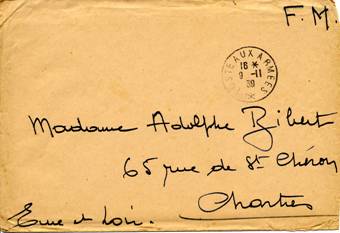 F. M.
POSTE AUX ARMEES
18 *
9 -11
39
*
Madame Adolphe Bibert
65 rue de St Chéron
Chartres
Eure et Loir.